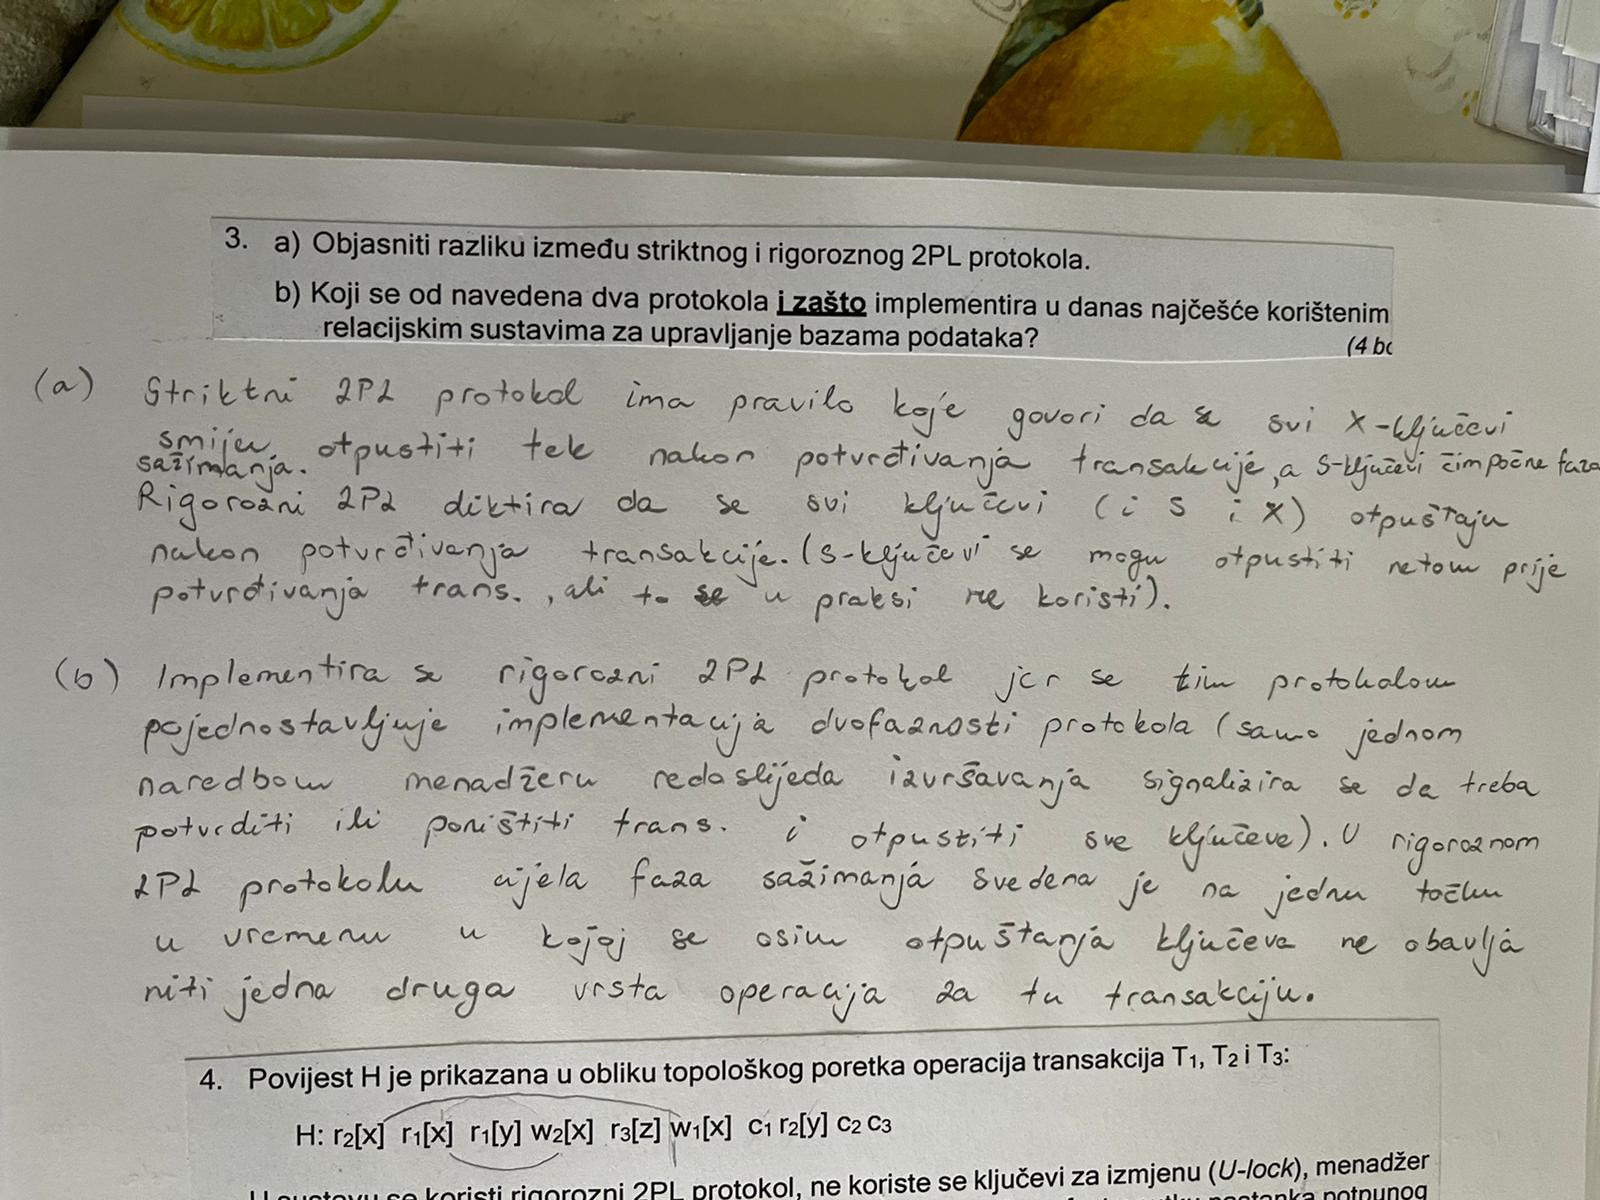 3. a) Objasniti razliku između striktnog i rigoroznog 2PL protokola.
b) Koji se od navedena dva protokola i zašto implementira u danas najčešće korištenim
relacijskim sustavima za upravljanje bazama podataka?
(4 bo
(a) Striktni 2PL protokol ima pravilo koje govori da se svi X-ključevi
smiju otpustiti tek nakon potvrđivanja transakcije, a S-ključevi čim počne faza
sažimanja.
Rigorozni 2PL diktira da se svi ključevi (i S i X) otpuštaju
nakon potvrđivanja transakcije. (S-ključevi se mogu otpustiti netom prije
potvrđivanja trans., ali to se u praksi ne koristi).
(b) Implementira se rigorozni 2PL protokol jer se tim protokolom
pojednostavljuje implementacija dvofaznosti protokola (samo jednom
naredbom menadžeru redoslijeda izvršavanja signalizira se da treba
potvrditi ili poništiti trans. i otpustiti sve ključeve). U rigoroznom
2PL protokolu cijela faza sažimanja svedena je na jednu točku
u vremenu u kojoj se osim otpuštanja ključeva ne obavlja
niti jedna druga vrsta operacija za tu transakciju.
4. Povijest H je prikazana u obliku topološkog poretka operacija transakcija T1, T2 i T3:
H: r2[x] r1[x] r1[y] w2[x] r3[z] w1[x] c1 r2[y] c2 c3
U sustavu se koristi rigorozni 2PL protokol, ne koriste se ključevi za izmjenu (U-lock), menadžer
nastanka potpunog